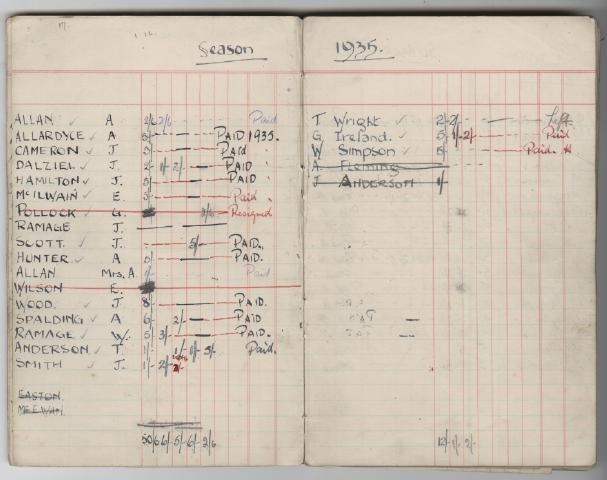 Season 1935.
ALLAN A 2/6 2/6 Paid
ALLARDYCE ✓ A 5/- PAID 1935.
CAMERON ✓ J 5/- PAID
DALZIEL ✓ J 2/- 1/- 2/- PAID
HAMILTON ✓ J. 5/- PAID
McILWAIN ✓ E. 5/- Paid
POLLOCK G. Resigned
RAMAGE J.
SCOTT ✓ J. 5/- PAID.
HUNTER ✓ A 5/- PAID.
ALLAN Mrs. A Paid
WILSON E.
WOOD. ✓ J 8/- PAID.
SPALDING ✓ A 6/- 2/- PAID
RAMAGE ✓ W. 5/ 3/- PAID.
ANDERSON ✓ T. 1/- 1/- 1/- 5/- Paid.
SMITH ✓ J. 1/- 2/-
EASTON
MEEWAN
50/6 6/- 5/- 6/- 2/6
T Wright ✓ 2/- 2/- Left
G. Ireland. ✓ 5/- 1/- 2/- Paid
W Simpson ✓ 5/- Paid.
A Fleming
J ANDERSON 1/-
12/- 1/- 2/-